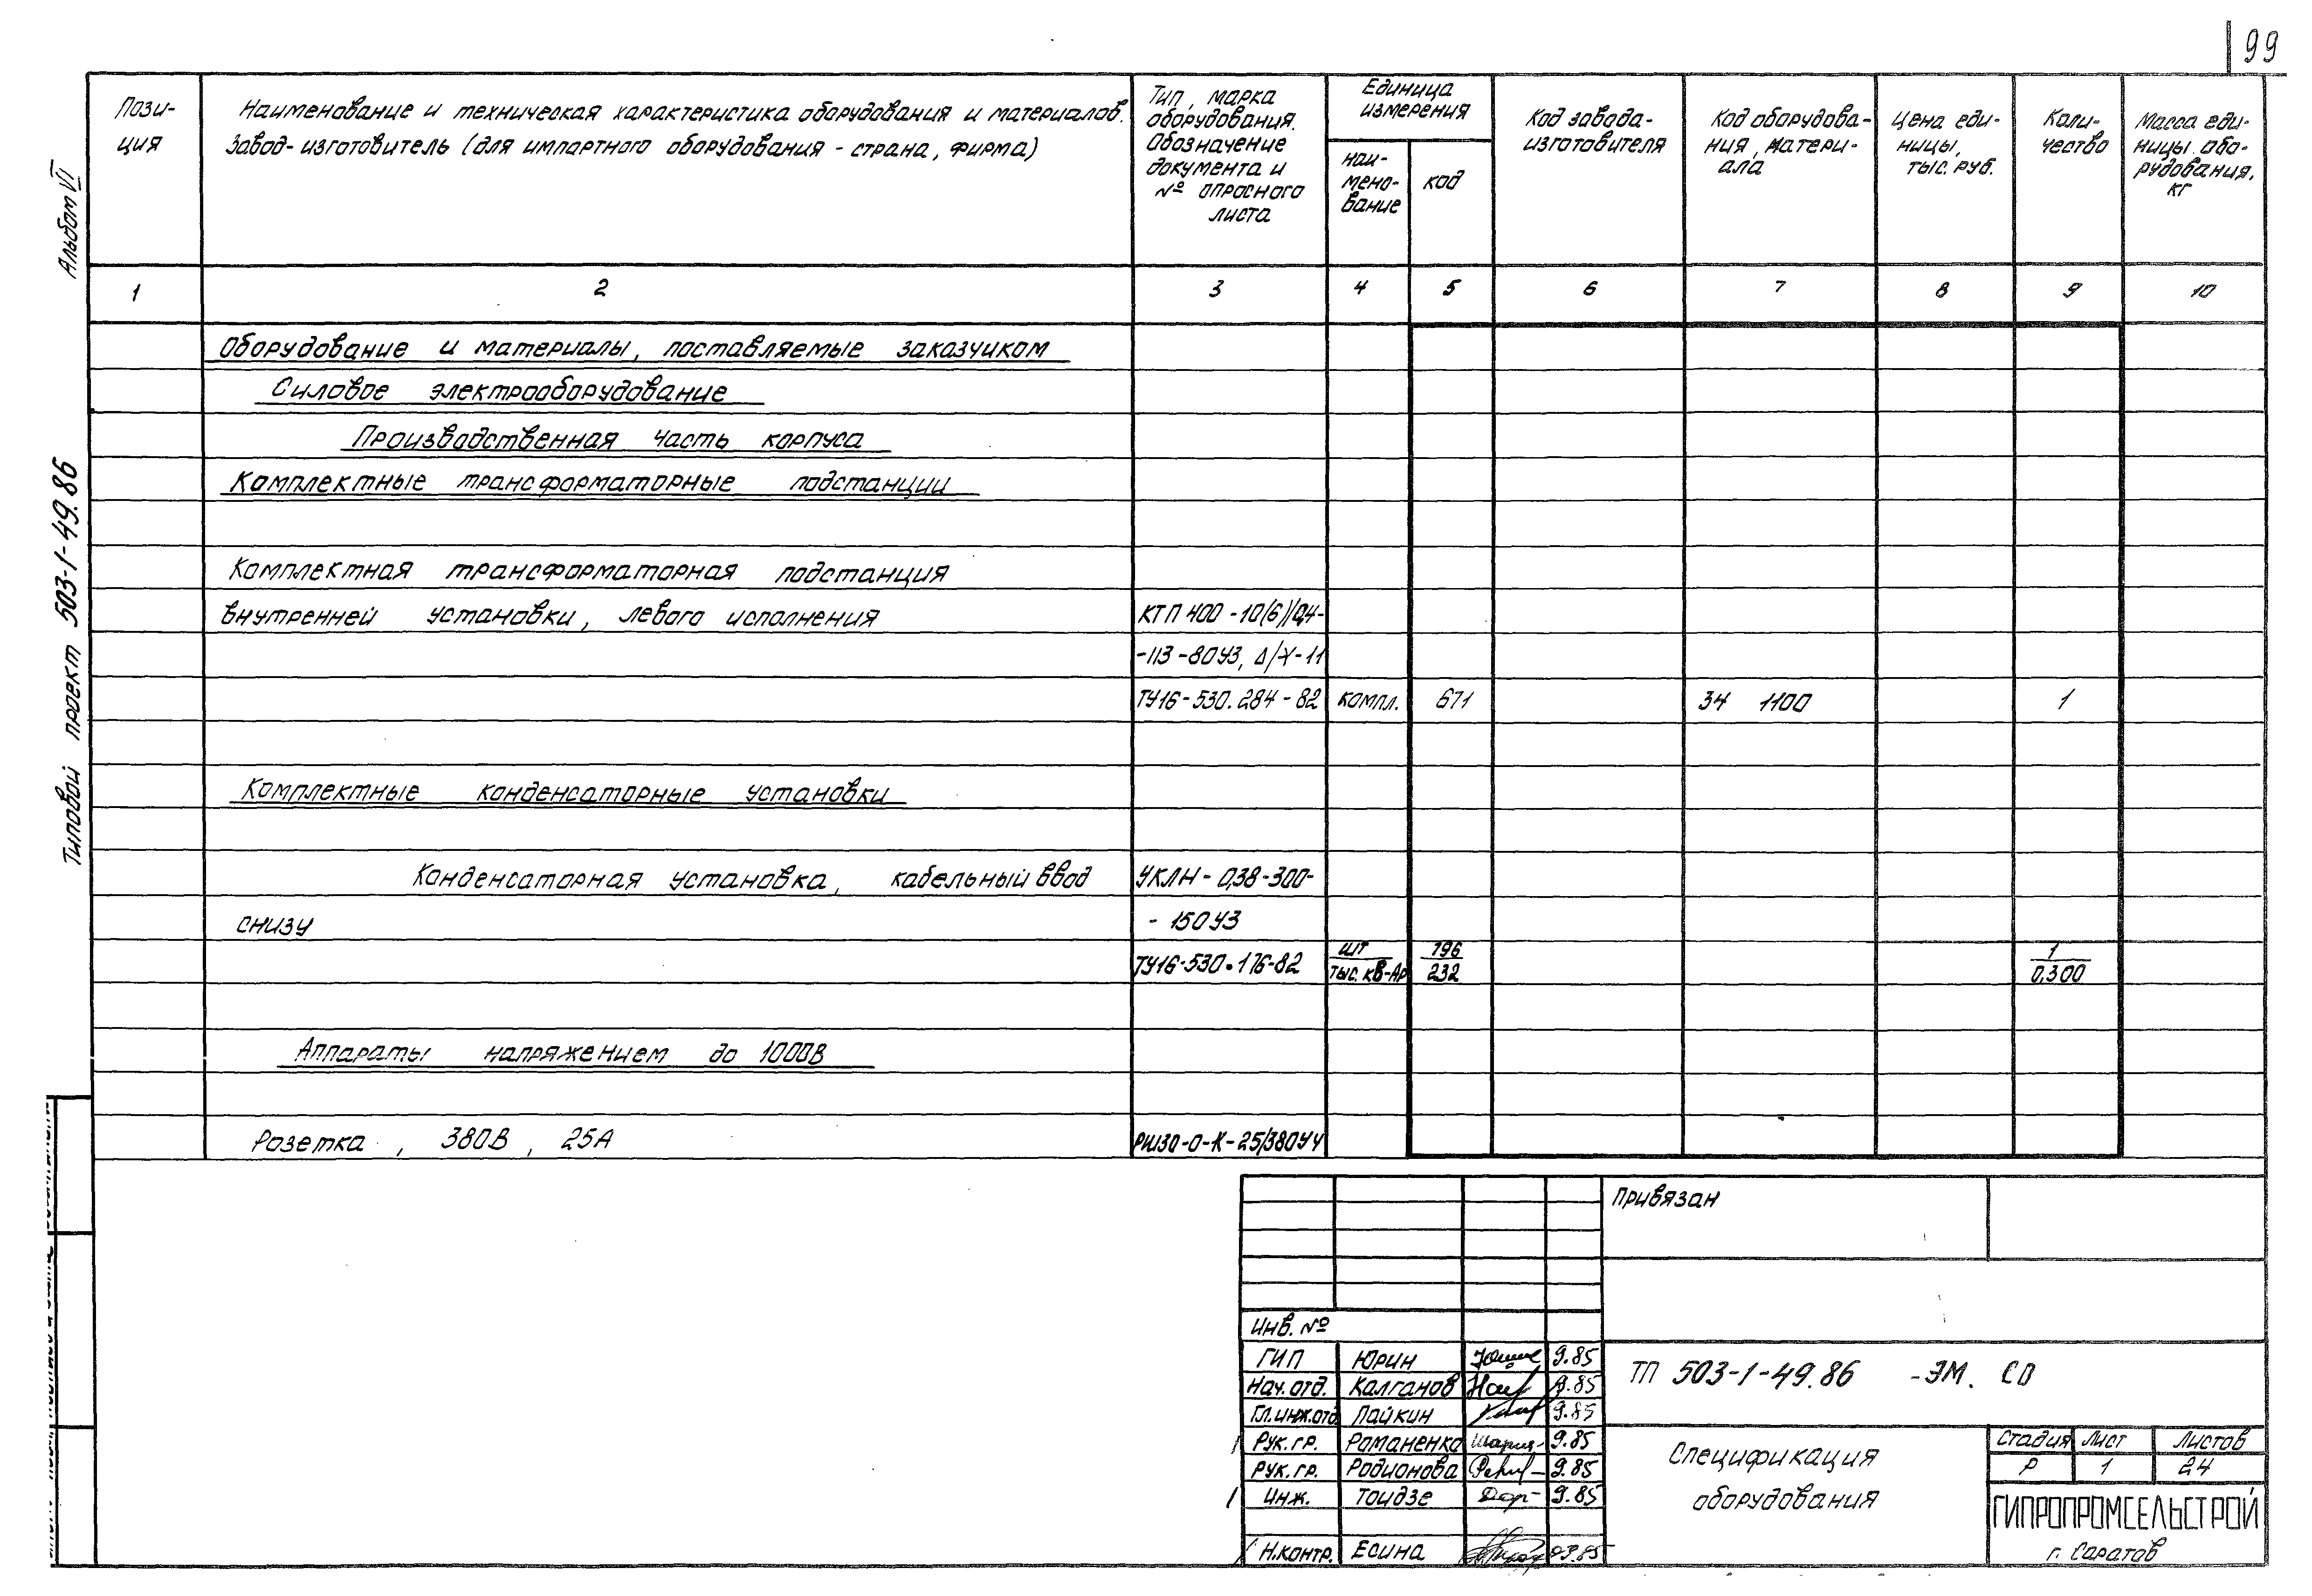 99
Альбом VI
Типовой проект 503-1-49.86
Пози-
ция
Наименование и техническая характеристика оборудования и материалов.
Завод-изготовитель (для импортного оборудования - страна, фирма)
Тип, марка
оборудования.
Обозначение
документа и
№ опросного
листа
Единица
измерения
наи-
мено-
вание
код
Код завода-
изготовителя
Код оборудова-
ния, матери-
ала
Цена еди-
ницы,
тыс. руб.
Коли-
чество
Масса еди-
ницы обо-
рудования,
кг
1 2 3 4 5 6 7 8 9 10
Оборудование и материалы, поставляемые заказчиком
Силовое электрооборудование
Производственная часть корпуса
Комплектные трансформаторные подстанции
Комплектная трансформаторная подстанция
внутренней установки, левого исполнения КТП 400-10(6)/0,4-
-113-80У3, Δ/Y-11
ТУ16-530.284-82 компл. 671 34 1100 1
Комплектные конденсаторные установки
Конденсаторная установка, кабельный ввод УКЛН-0,38-300-
снизу - 150У3
ТУ16-530.176-82 шт 796 1
тыс. кв-Ар 232 0,300
Аппараты напряжением до 1000В
Розетка, 380В, 25А РШ30-0-К-25/380У4
Привязан
Инв. №
ГИП Юрин 9.85
Нач. отд. Калганов 9.85
Гл. инж. отд. Пайкин 9.85
Рук. гр. Романенко 9.85
Рук. гр. Родионова 9.85
Инж. Тоидзе 9.85
Н. контр. Есина 03.85
ТП 503-1-49.86 -ЭМ. СО
Спецификация
оборудования
Стадия Лист Листов
Р 1 24
ГИПРОПРОМСЕЛЬСТРОЙ
г. Саратов